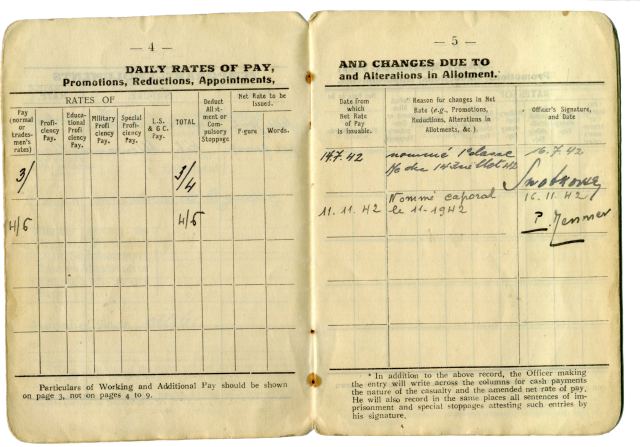 — 4 —
DAILY RATES OF PAY,
Promotions, Reductions, Appointments,
RATES OF
Pay (normal or trades-men's rates)
Profi-ciency Pay.
Educa-tional Profi ciency Pay
Military Profi ciency Pay.
Special Profi-ciency Pay.
L.S. & G.C. Pay.
TOTAL
Deduct All t-ment or Com-pulsory Stoppage
Net Rate to be Issued.
F-gure
Words.
3/
3/4
4/6
4/6
Particulars of Working and Additional Pay should be shown
on page 3, not on pages 4 to 9.
— 5 —
AND CHANGES DUE TO
and Alterations in Allotment.*
Date from which Net Rate of Pay is issuable.
Reason for changes in Net Rate (e.g., Promotions, Reductions, Alterations in Allotments, &c.)
Officer's Signature, and Date
14.7.42 nommé 1e classe 16.7.42
du 14 juillet 42
Nommé caporal 16.11.42
11.11.42 le 11-1942
* In addition to the above record, the Officer making
the entry will write across the columns for cash payments
the nature of the casualty and the amended net rate of pay.
He will also record in the same places all sentences of im-
prisonment and special stoppages attesting such entries by
his signature.